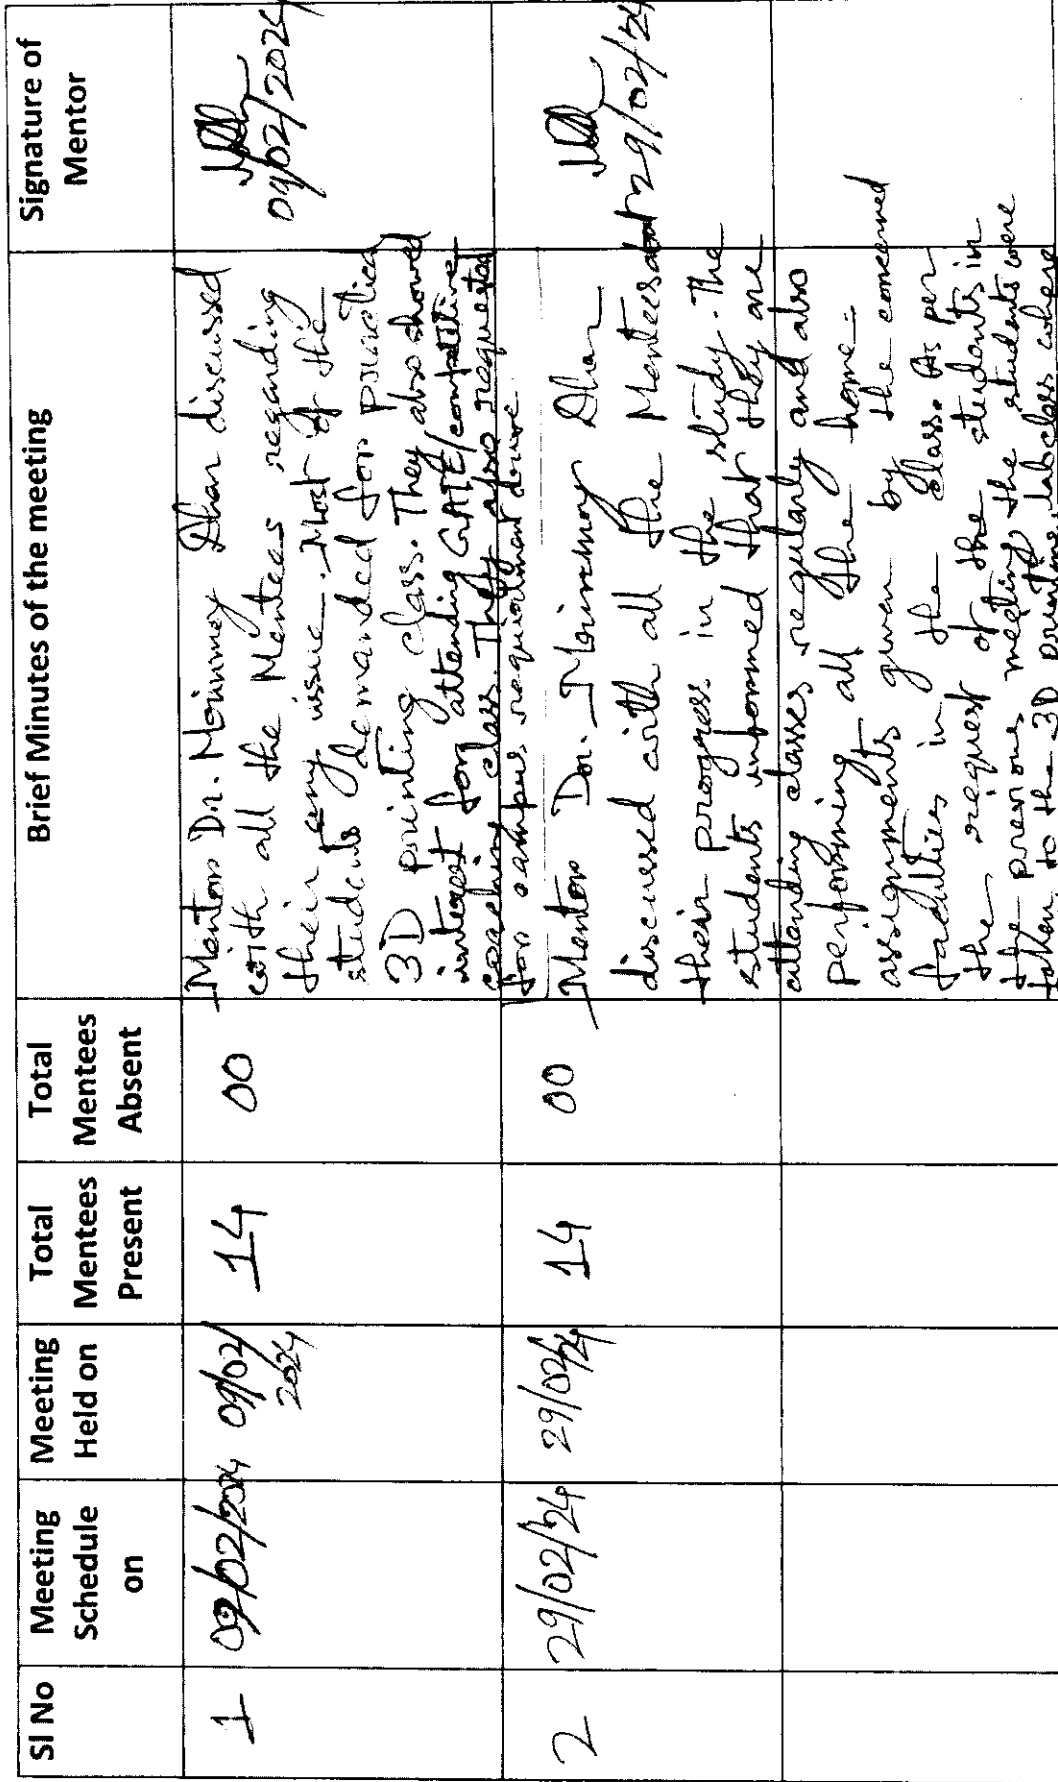 Sl No
Meeting
Schedule
on
Meeting
Held on
Total
Mentees
Present
Total
Mentees
Absent
Brief Minutes of the meeting
Signature of
Mentor
1
09/02/2024
09/02/
2024
14
00
Mentor Dr. Mrinmoy Dhar discussed
with all the Mentees regarding
their any issue. Most of the
students demanded for practical
3D printing class. They also showed
interest for attending GATE/competitive
coaching class. They also requested
for campus requirement
09/02/2024
2
29/02/24
29/02/24
14
00
Mentor Dr. Mrinmoy Dhar
discussed with all the Mentees
their progress in the study. The
students informed that they are
attending classes regularly and also
performing all the home
assignments given by the concerned
faculties in the class. As per
the request of the students in
the previous meeting, the students were
taken to the 3D printing lab class where
29/02/24